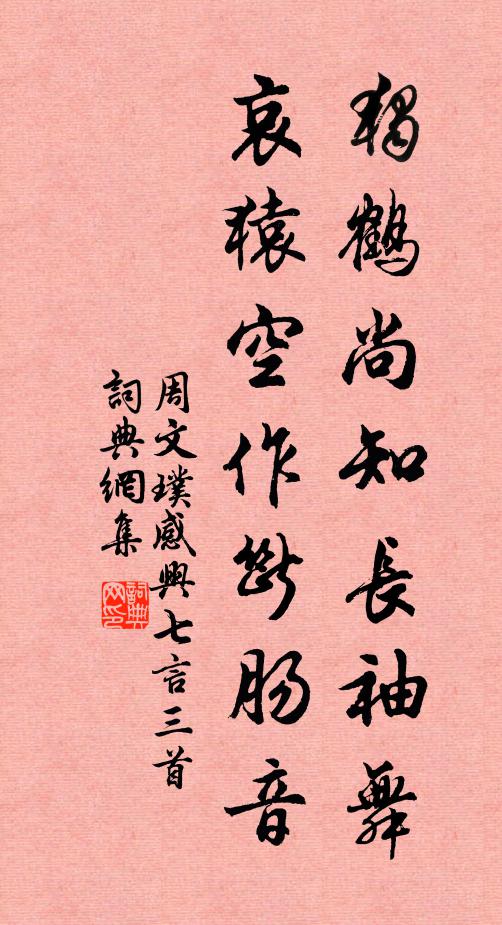 獨鶴尚知長袖舞
哀猿空作斷腸音
周文璞感興七言三首
詞典網集
詞典
网印